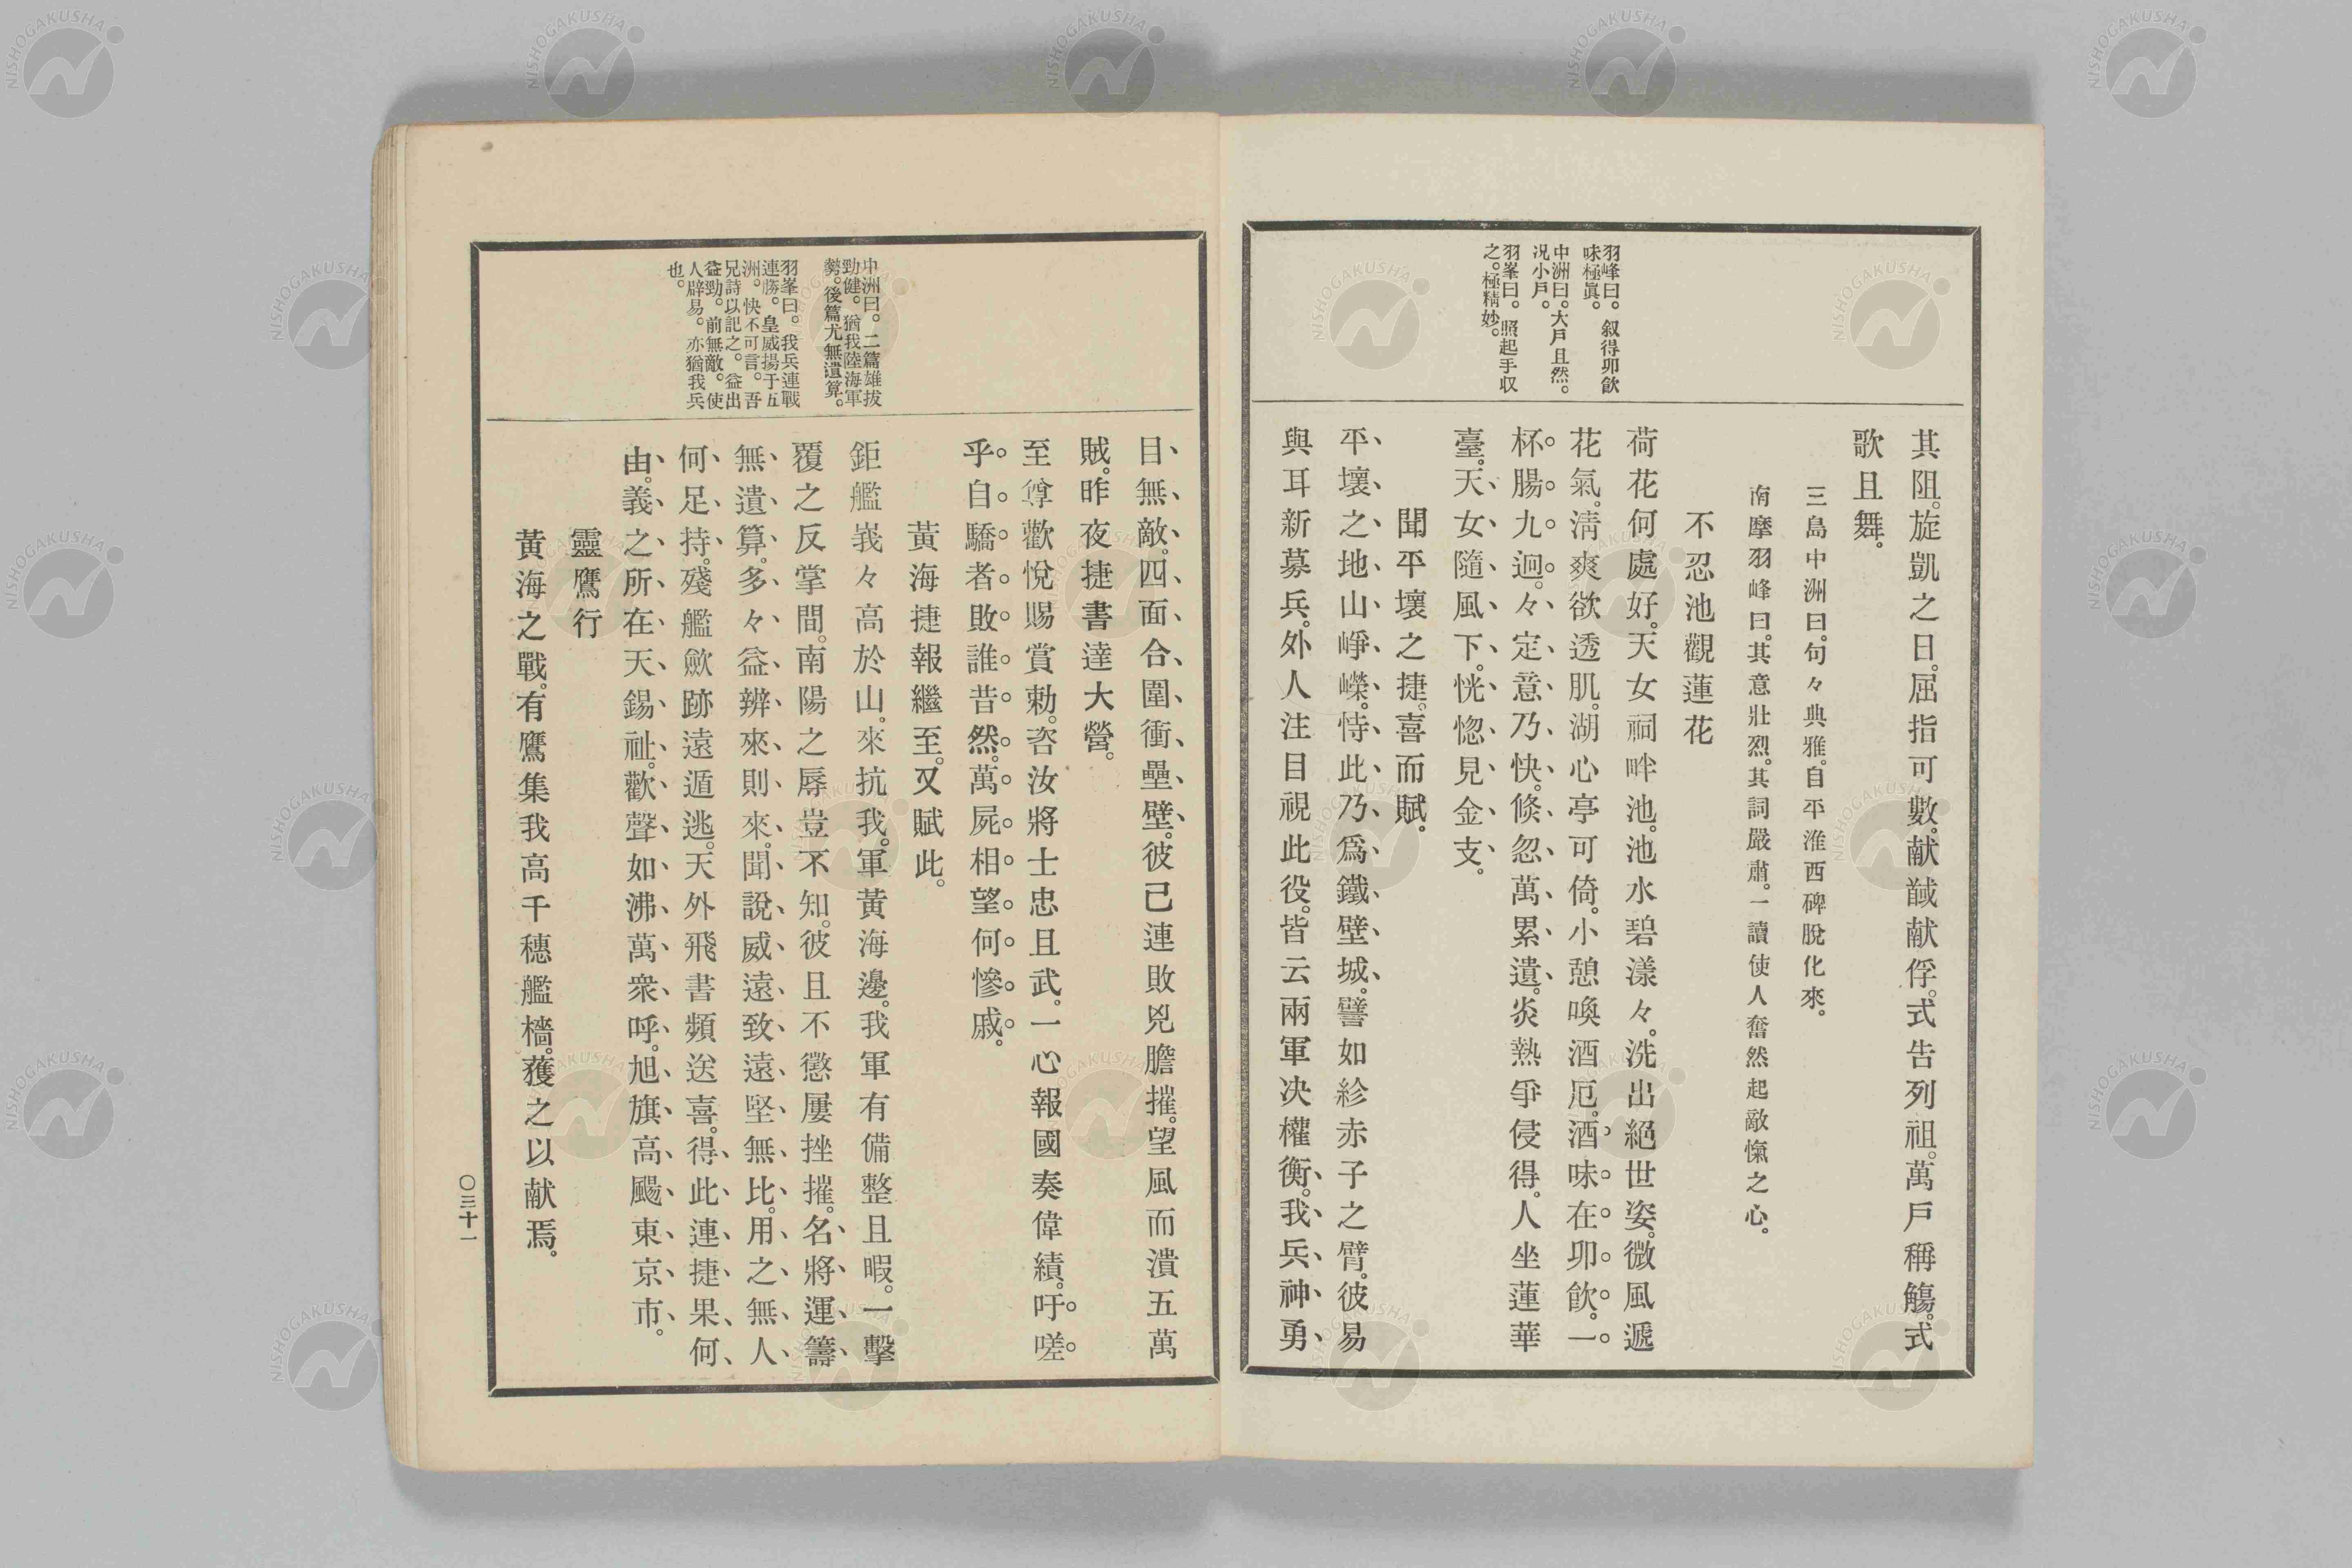 羽峰曰。叙得卯飮
味極眞。
中洲曰。大戶且然。
况小戶。
羽峯曰。照起手収
之。極精妙。
其阻。旋凱之日。屈指可數。献馘献俘。式告列祖。萬戶稱觴。式
歌且舞。
三島中洲曰。句々典雅。自平淮西碑脫化來。
南摩羽峰曰。其意壯烈。其詞嚴肅。一讀使人奮然起敵愾之心。
不忍池觀蓮花
荷花何處好。天女祠畔池。池水碧漾々。洗出絕世姿。微風遞
花氣。淸爽欲透肌。湖心亭可倚。小憩喚酒卮。酒味在卯飮。一
杯腸九迴。々定意乃快。倏忽萬累遺。炎熱爭侵得。人坐蓮華
臺。天女隨風下。恍惚見金支。
聞平壤之捷。喜而賦。
平壤之地山崢嶸。恃此乃爲鐵壁城。譬如紾赤子之臂。彼易
與耳新募兵。外人注目視此役。皆云兩軍决權衡。我兵神勇
中洲曰。二篇雄拔
勁健。猶我陸海軍
勢。後篇尤無遺算。
羽峯曰。我兵連戰
連勝。皇威揚于五
洲。快不可言。吾
兄詩以記之。益出
益勁。前無敵。使
人辟易。亦猶我兵
也。
目無敵。四面合圍衝壘壁。彼已連敗兇膽摧。望風而潰五萬
賊。昨夜捷書達大營。
至尊歡悅賜賞勅。咨汝將士忠且武。一心報國奏偉績。吁嗟
乎。自驕者敗誰昔然。萬屍相望何慘戚。
黃海捷報繼至。又賦此。
鉅艦峩々高於山。來抗我軍黃海邊。我軍有備整且暇。一擊
覆之反掌間。南陽之辱豈不知。彼且不懲屢挫摧。名將運籌
無遺算。多々益辨來則來。聞說威遠致遠堅無比。用之無人
何足持。殘艦歛跡遠遁逃。天外飛書頻送喜。得此連捷果何
由。義之所在天錫祉。歡聲如沸萬衆呼。旭旗高颺東京市。
靈鷹行
黃海之戰。有鷹集我高千穗艦檣。獲之以献焉。
〇三十一
NISHOGAKUSHA